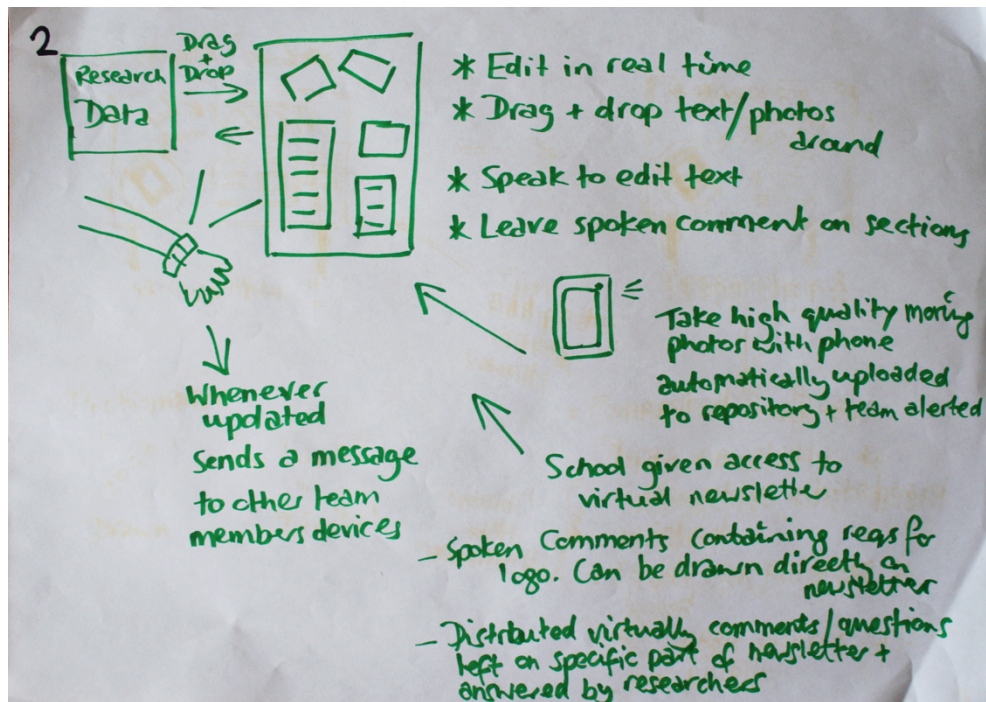 2
Research
Data
Drag
+
Drop
* Edit in real time
* Drag + drop text/photos
around
* Speak to edit text
* Leave spoken comment on sections
Take high quality moving
photos with phone
automatically uploaded
to repository + team alerted
Whenever
updated
Sends a message
to other team
members devices
School given access to
virtual newsletter
- Spoken Comments containing reqs for
logo. Can be drawn directly on
newsletter
- Distributed virtually comments/questions
left on specific part of newsletter +
answered by researchers